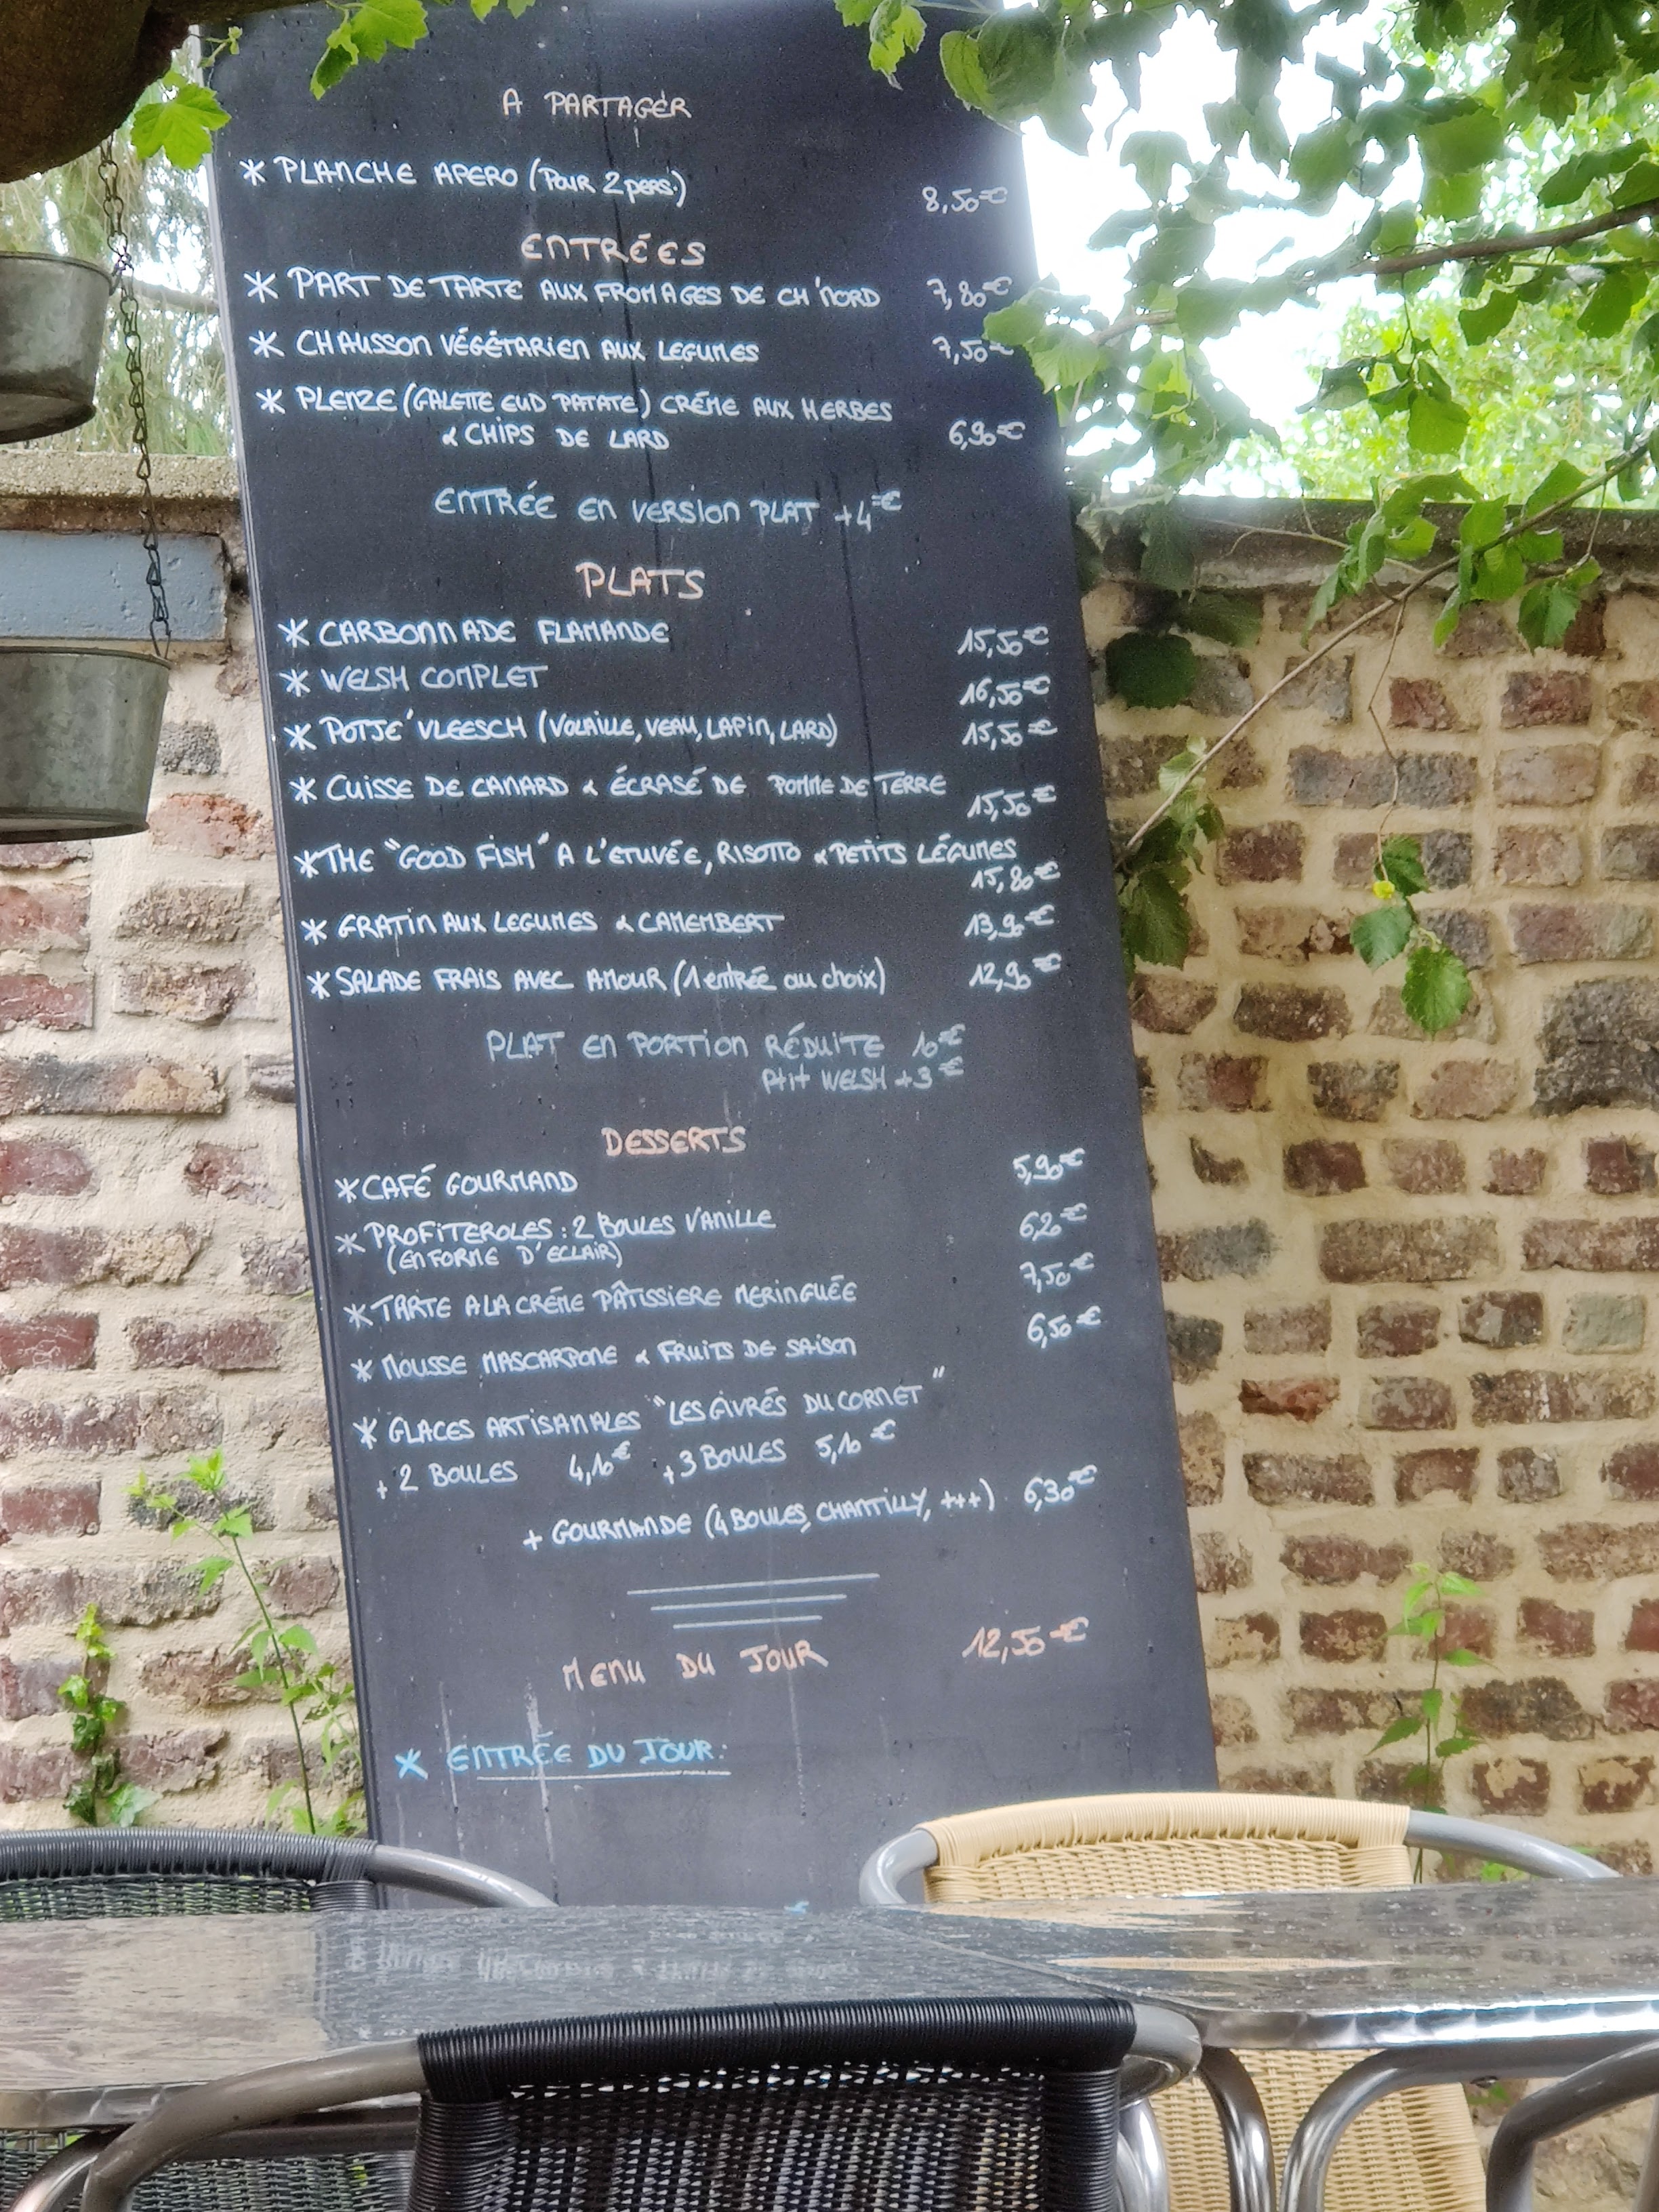 A PARTAGER
* PLANCHE APERO (POUR 2 pers.) 8,50€
ENTRÉES
* PART DE TARTE AUX FROMAGES DE CH'NORD 7,80€
* CHAUSSON VÉGÉTARIEN AUX LEGUMES 7,50€
* PLENZE (GALETTE EUD PATATE) CRÉME AUX HERBES
& CHIPS DE LARD 6,90€
ENTRÉE EN VERSION PLAT +4€
PLATS
* CARBONNADE FLAMANDE 15,50€
* WELSH COMPLET 16,50€
* POTJE'VLEESCH (VOLAILLE, VEAU, LAPIN, LARD) 15,50€
* CUISSE DE CANARD & ÉCRASÉ DE POMME DE TERRE
15,50€
* THE "GOOD FISH" A L'ETUVÉE, RISOTTO & PETITS LÉGUMES
15,80€
* GRATIN AUX LEGUMES & CAMEMBERT 13,90€
* SALADE FRAIS AVEC AMOUR (1 entrée au choix) 12,90€
PLAT EN PORTION RÉDUITE 10€
Ptit WELSH +3€
DESSERTS
* CAFÉ GOURMAND 5,90€
* PROFITEROLES : 2 BOULES VANILLE 6,20€
(EN FORME D'ECLAIR)
* TARTE A LA CRÉME PÂTISSIERE MERINGUÉE 7,50€
* MOUSSE MASCARPONE & FRUITS DE SAISON 6,50€
* GLACES ARTISANALES "LES GIVRÉS DU CORNET"
+ 2 BOULES 4,10€ +3 BOULES 5,10€
+ GOURMANDE (4 BOULES, CHANTILLY, +++) 6,30€
MENU DU JOUR 12,50€
* ENTRÉE DU JOUR: